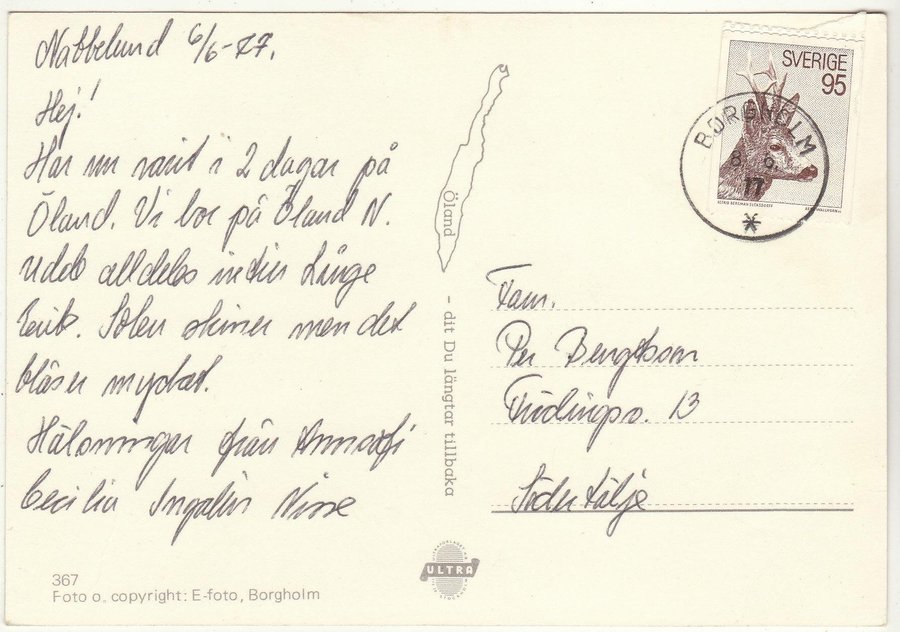 Nabbelund 6/6-77.
Hej!
Har nu varit i 2 dagar på
Öland. Vi bor på Öland N.
Udde alldeles intill Långe
Erik. Solen skiner men det
blåser mycket.
Hälsningar från
Cecilia Ingalin Nisse
367
Foto o. copyright: E-foto, Borgholm
Öland - dit Du längtar tillbaka
ULTRA
SVERIGE
95
BORGHOLM
8 6.
77
Fam.
Per Bengtsson
13
Södertälje